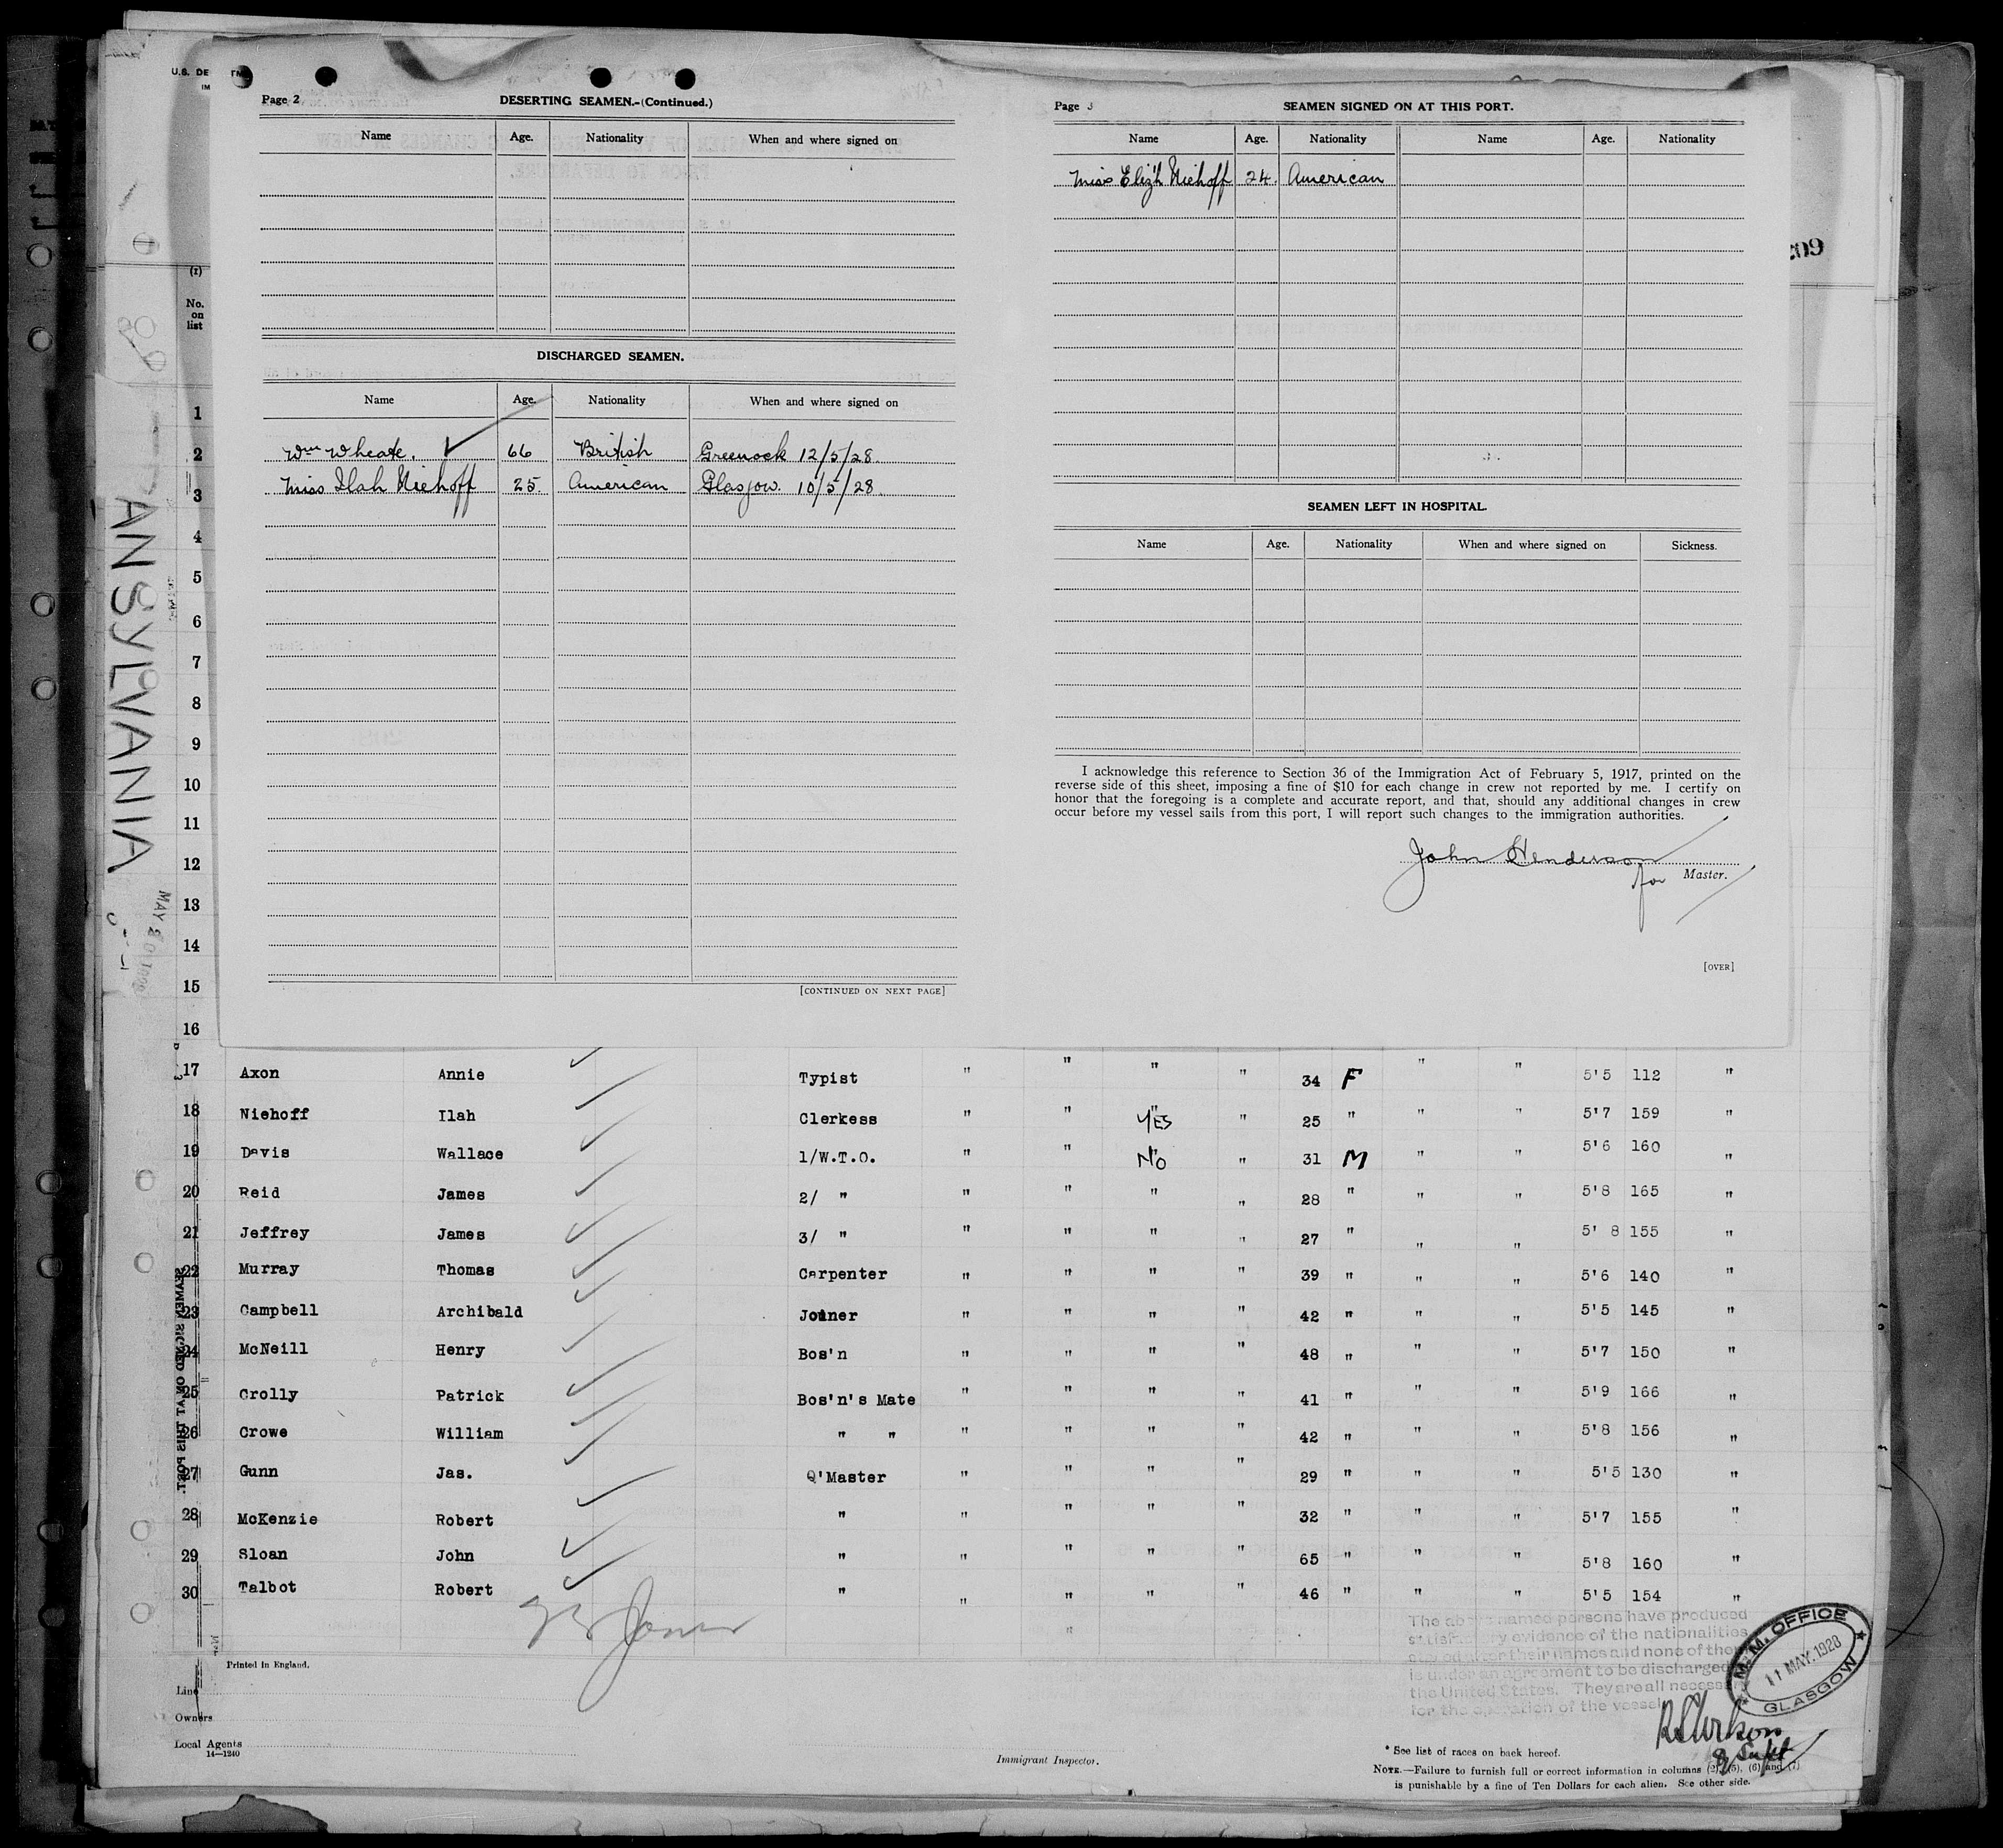 U.S. DE
IM
Page 2
DESERTING SEAMEN.-(Continued.)
Name Age. Nationality When and where signed on
DISCHARGED SEAMEN.
Name Age. Nationality When and where signed on
Wm Wheate. 66 British Greenock 12/5/28.
Miss Ilah Niehoff 25. American Glasgow. 10/5/28.
[CONTINUED ON NEXT PAGE]
Page 3
SEAMEN SIGNED ON AT THIS PORT.
Name Age. Nationality Name Age. Nationality
Miss Elizh Niehoff 24. American
SEAMEN LEFT IN HOSPITAL.
Name Age. Nationality When and where signed on Sickness.
I acknowledge this reference to Section 36 of the Immigration Act of February 5, 1917, printed on the
reverse side of this sheet, imposing a fine of $10 for each change in crew not reported by me. I certify on
honor that the foregoing is a complete and accurate report, and that, should any additional changes in crew
occur before my vessel sails from this port, I will report such changes to the immigration authorities.
John Henderson
for Master.
[OVER]
(1)
No.
on
list
1
2
3
4
5
6
7
8
9
10
11
12
13
14
15
16
ANSYLVANIA
17 Axon Annie Typist " " " " 34 F " " 5'5 112 "
18 Niehoff Ilah Clerkess " " YES " 25 " " " 5'7 159 "
19 Davis Wallace 1/W.T.O. " " No " 31 M " " 5'6 160 "
20 Reid James 2/ " " " " " 28 " " " 5'8 165 "
21 Jeffrey James 3/ " " " " " 27 " " " 5' 8 155 "
22 Murray Thomas Carpenter " " " " 39 " " " 5'6 140 "
23 Campbell Archibald Joiner " " " " 42 " " " 5'5 145 "
24 McNeill Henry Bos'n " " " " 48 " " " 5'7 150 "
25 Crolly Patrick Bos'n's Mate " " " " 41 " " " 5'9 166 "
26 Crowe William " " " " " " 42 " " " 5'8 156 "
27 Gunn Jas. Q'Master " " " " 29 " " " 5'5 130 "
28 McKenzie Robert " " " " " 32 " " " 5'7 155 "
29 Sloan John " " " " " 65 " " " 5'8 160 "
30 Talbot Robert " " " " " 46 " " " 5'5 154 "
SEAMEN SIGNED ON AT THIS PORT.
The above named persons have produced
satisfactory evidence of the nationalities
their names and none of them
is under an agreement to be discharged
the United States. They are all necessary
for the operation of the vessel
M. M. OFFICE
11 MAY. 1928
GLASGOW
Printed in England.
Line
Owners
Local Agents
14—1240
Immigrant Inspector.
* See list of races on back hereof.
NOTE.—Failure to furnish full or correct information in columns (2), (5), (6) and (7)
is punishable by a fine of Ten Dollars for each alien. See other side.